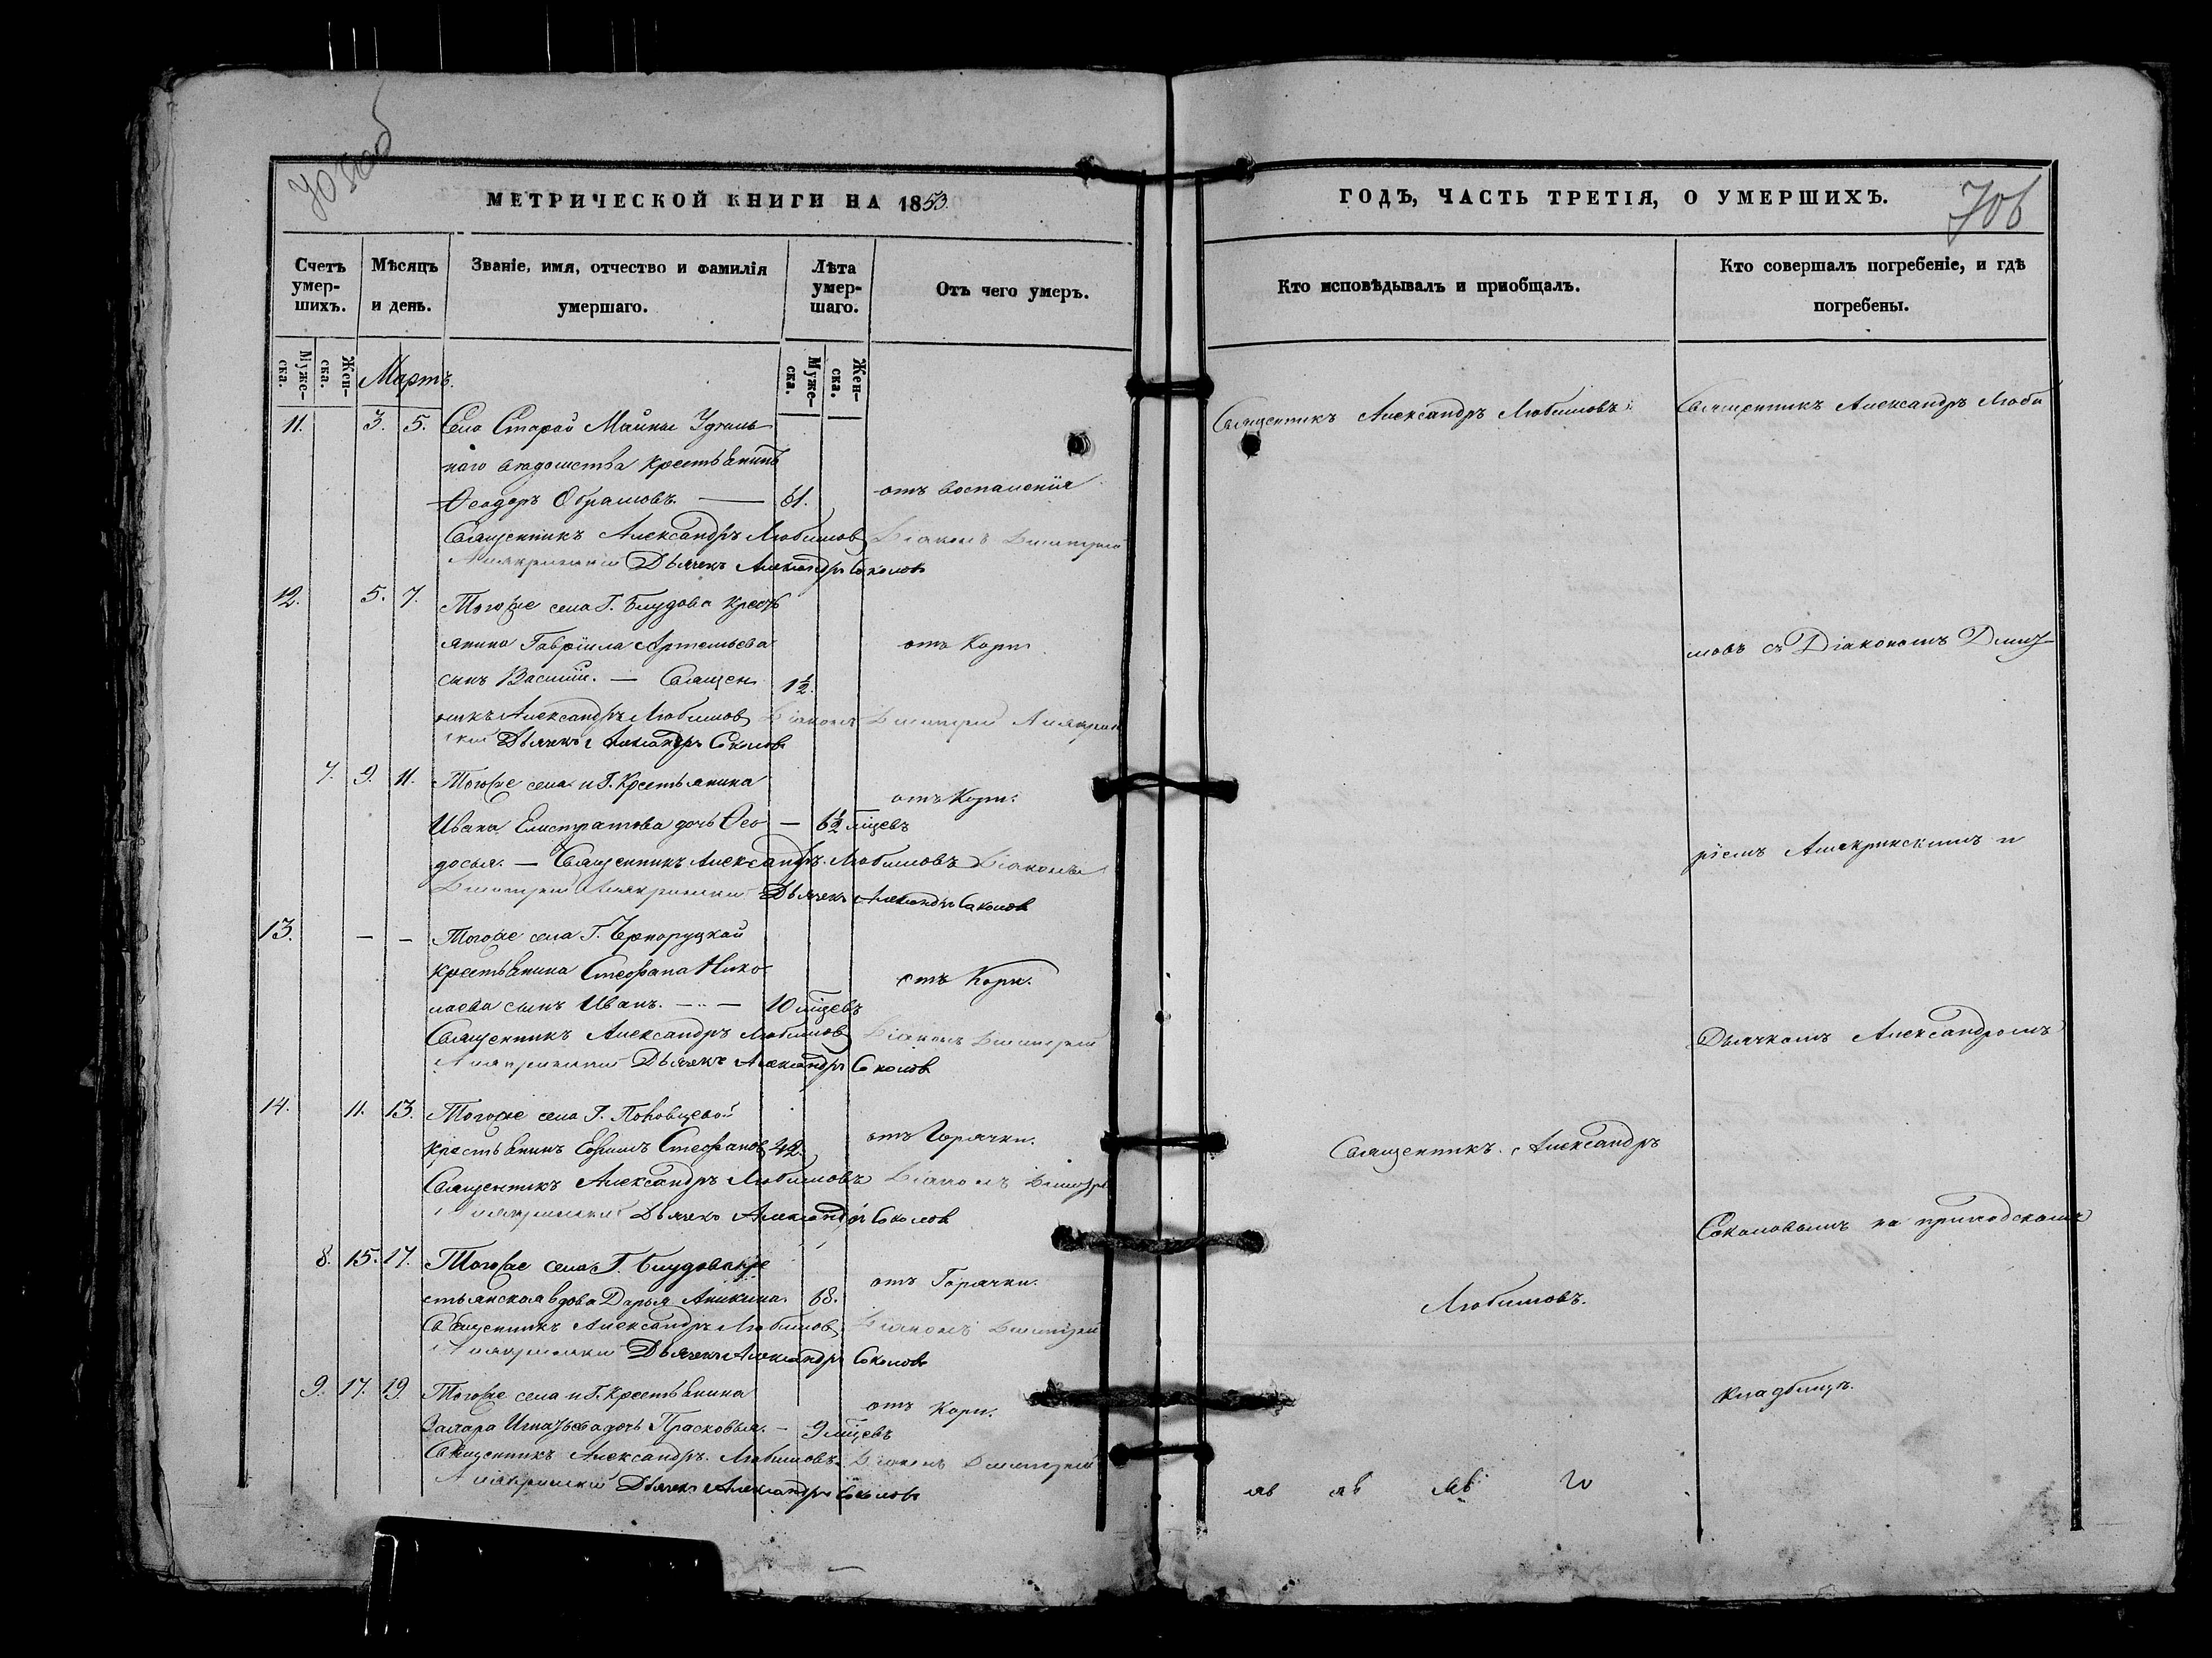 МЕТРИЧЕСКОЙ КНИГИ НА 1853
Счетъ умер-шихъ.
Мѣсяцъ и день.
Званіе, имя, отчество и фамилія умершаго.
Лѣта умер-шаго.
Отъ чего умеръ.
Муже-ска.
Жен-ска.
Мартъ.
Муже-ска.
Жен-ска.
11. 3. 5. Села Старой Майны Удѣль
наго вѣдомства крестьянинъ
Ѳеодоръ Обрамовъ. — 61. отъ воспаленія
Священникъ Александръ Любимовъ Діаконъ Димитрій
Дьячекъ Александръ Соколовъ
12. 5. 7. Тогоже села Г. Блудова кресть
янина Гавріила Артемьева отъ Кори.
сынъ Василій. — Священ 1½.
никъ Александръ Любимовъ Діаконъ Димитрій
Дьячекъ Александръ Соколовъ
7. 9. 11. Тогоже села и Г. Крестьянина
отъ Кори.
Ивана Елистратова дочь Ѳео — 6½ мѣсцевъ
досья. — Священникъ Александръ Любимовъ Діаконъ
Димитрій Дьячекъ Александръ Соколовъ
13. — — Тогоже села Г. Чернoруцкой
крестьянина Стефана Нико
отъ Кори.
лаева сынъ Иванъ. — 10 мѣсцевъ
Священникъ Александръ Любимовъ Діаконъ Димитрій
Дьячекъ Александръ Соколовъ
14. 11. 13. Тогоже села Г.
крестьянинъ Ефимъ Стефановъ 42. отъ Горячки.
Священникъ Александръ Любимовъ Діаконъ Димитрій
Дьячекъ Александръ Соколовъ
8. 15. 17. Тогоже села Г. Блудова кре
стьянская вдова Дарья Аникина. 68. отъ Горячки.
Священникъ Александръ Любимовъ Діаконъ Димитрій
Дьячекъ Александръ Соколовъ
9. 17. 19. Тогоже села и Г. крестьянина
Захара Игнатьева дочь Прасковья. — 9 мѣсцевъ отъ Кори.
Священникъ Александръ Любимовъ Діаконъ Димитрій
Дьячекъ Александръ Соколовъ
ГОДЪ, ЧАСТЬ ТРЕТІЯ, О УМЕРШИХЪ.
706
Кто исповѣдывалъ и пріобщалъ.
Кто совершалъ погребеніе, и гдѣ погребены.
Священникъ Александръ Любимовъ.
Священникъ Александръ Люби
мовъ съ Діакономъ Димит
ріемъ и
Дьячкомъ Александромъ
Священникъ Александръ
Соколовымъ на приходскомъ
Любимовъ.
кладбищѣ.